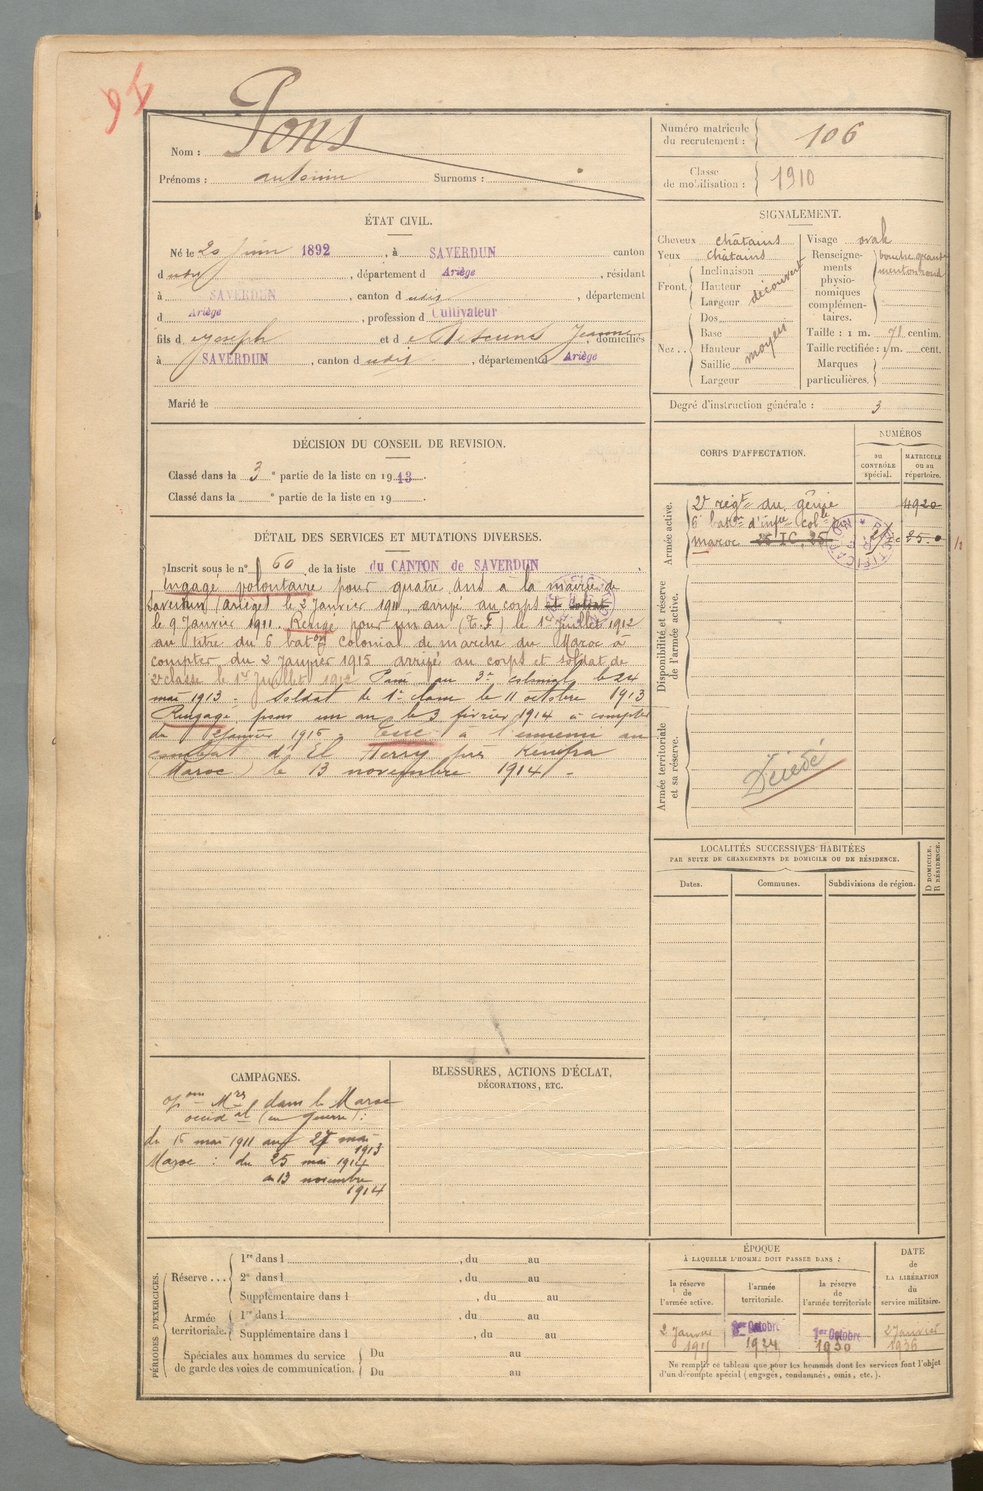 Pons
Nom :
Prénoms : antonin Surnoms :
Numéro matricule du recrutement : 106
Classe de mobilisation : 1910
ÉTAT CIVIL.
Né le 20 Juin 1892, à SAVERDUN canton
d udit, département d Ariège, résidant
à SAVERDUN, canton d udit, département
d Ariège, profession d Cultivateur
fils d e Joseph et d e Jeanne, domiciliés
à SAVERDUN, canton d udit, département d Ariège
Marié le
SIGNALEMENT.
Cheveux châtains
Yeux châtains
Front. Inclinaison
Hauteur
Largeur
découvert
Nez.. Dos
Base
Hauteur
Saillie
Largeur
moyen
Visage ovale
Renseignements physionomiques complémentaires.
bouche grande
menton rond
Taille : 1 m. 71 centim.
Taille rectifiée : 1 m. cent.
Marques particulières.
Degré d'instruction générale : 3
DÉCISION DU CONSEIL DE REVISION.
Classé dans la 3e partie de la liste en 1913.
Classé dans la e partie de la liste en 19 .
CORPS D'AFFECTATION.
NUMÉROS
au CONTRÔLE spécial.
MATRICULE ou au répertoire.
Armée active.
2e régt du génie 4920
6e baton d'infie colle du
maroc 25 IC, 25
RECTIFICATION
Disponibilité et réserve de l'armée active.
Armée territoriale et sa réserve.
Décédé
DÉTAIL DES SERVICES ET MUTATIONS DIVERSES.
Inscrit sous le n° 60 de la liste du CANTON de SAVERDUN
Engagé volontaire pour quatre ans à la mairie de
Saverdun (Ariège) le 2 Janvier 1911, arrivé au corps et soldat
le 9 Janvier 1911. Rengé pour un an (T.F) le 1er Juillet 1912
au titre du 6 baton colonial de marche du Maroc à
compter du 2 Janvier 1915 arrivé au corps et soldat de
2e classe le 1er Juillet 1912 Passé au 3e colonial le 24
mai 1913. Soldat de 1e classe le 11 octobre 1913
Rengagé pour un an le 3 février 1914 à compter
du 2 Janvier 1915. Tué à l'ennemi au
combat d'El Herry près Kenifra
(Maroc) le 13 novembre 1914.
LOCALITÉS SUCCESSIVES HABITÉES
PAR SUITE DE CHANGEMENTS DE DOMICILE OU DE RÉSIDENCE.
Dates. Communes. Subdivisions de région. D DOMICILE. R RÉSIDENCE.
CAMPAGNES.
opons Mres dans le Maroc
occidal (en guerre) :
du 15 mai 1911 au 27 mai
1913
Maroc : du 25 mai 1914
au 13 novembre
1914
BLESSURES, ACTIONS D'ÉCLAT,
DÉCORATIONS, ETC.
PÉRIODES D'EXERCICES.
Réserve ... 1re dans l , du au
2e dans l , du au
Supplémentaire dans l , du au
Armée territoriale. 1re dans l , du au
Supplémentaire dans l , du au
Spéciales aux hommes du service de garde des voies de communication. Du au
Du au
ÉPOQUE
À LAQUELLE L'HOMME DOIT PASSER DANS :
la réserve de l'armée active.
l'armée territoriale.
la réserve de l'armée territoriale
DATE de LA LIBÉRATION du service militaire.
2 Janvier
1er Octobre 1924
1er Octobre 1930
2 Janvier 1936
Ne remplir ce tableau que pour les hommes dont les services font l'objet
d'un décompte spécial (engagés, condamnés, omis, etc.).